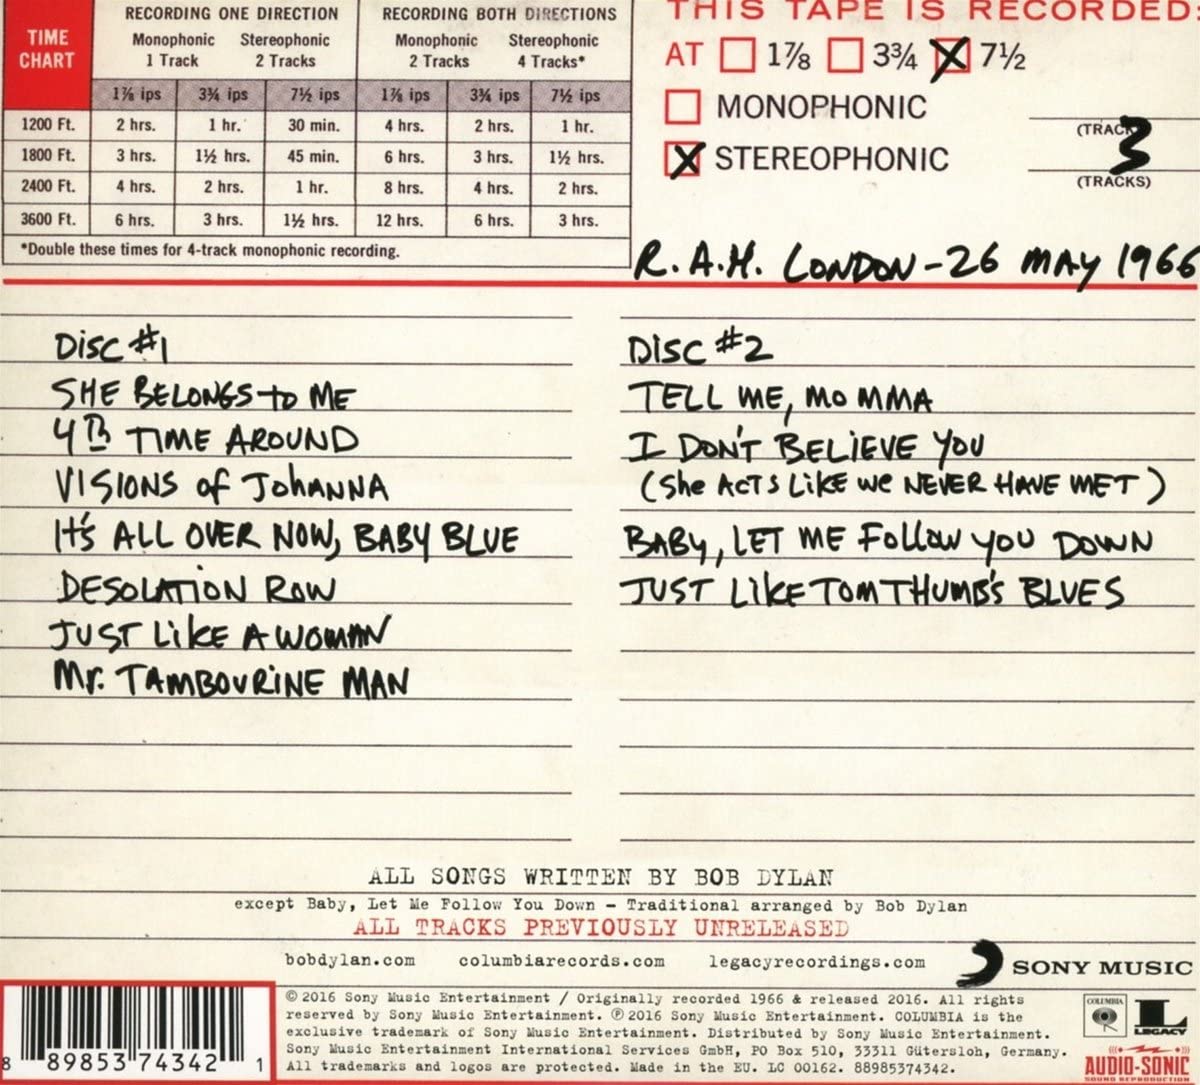 TIME CHART
RECORDING ONE DIRECTION
RECORDING BOTH DIRECTIONS
Monophonic 1 Track
Stereophonic 2 Tracks
Monophonic 2 Tracks
Stereophonic 4 Tracks*
1⅞ ips 3¾ ips 7½ ips 1⅞ ips 3¾ ips 7½ ips
1200 Ft. 2 hrs. 1 hr. 30 min. 4 hrs. 2 hrs. 1 hr.
1800 Ft. 3 hrs. 1½ hrs. 45 min. 6 hrs. 3 hrs. 1½ hrs.
2400 Ft. 4 hrs. 2 hrs. 1 hr. 8 hrs. 4 hrs. 2 hrs.
3600 Ft. 6 hrs. 3 hrs. 1½ hrs. 12 hrs. 6 hrs. 3 hrs.
*Double these times for 4-track monophonic recording.
THIS TAPE IS RECORDED:
AT 1⅞ 3¾ X 7½
MONOPHONIC
(TRACK
X STEREOPHONIC
3
(TRACKS)
R.A.H. LONDON - 26 MAY 1966
DISC #1
SHE BELONGS to ME
4th TIME AROUND
VISIONS of JOHANNA
It's ALL OVER NOW, BABY BLUE
DESOLATION ROW
JUST LIKE A WOMAN
Mr. TAMBOURINE MAN
DISC #2
TELL ME, MOMMA
I DON'T BELIEVE YOU
(She ACTS LIKE we NEVER HAVE MET)
BABY, LET ME Follow YOU DOWN
JUST LIKE TOM THUMB'S BLUES
ALL SONGS WRITTEN BY BOB DYLAN
except Baby, Let Me Follow You Down – Traditional arranged by Bob Dylan
ALL TRACKS PREVIOUSLY UNRELEASED
bobdylan.com columbiarecords.com legacyrecordings.com
SONY MUSIC
© 2016 Sony Music Entertainment / Originally recorded 1966 & released 2016. All rights
reserved by Sony Music Entertainment. ℗ 2016 Sony Music Entertainment. COLUMBIA is the
exclusive trademark of Sony Music Entertainment. Distributed by Sony Music Entertainment.
Sony Music Entertainment International Services GmbH, PO Box 510, 33311 Gütersloh, Germany.
All trademarks and logos are protected. Made in the EU. LC 00162. 88985374342.
8 89853 74342 1
COLUMBIA
L
LEGACY
AUDIO-SONIC
SOUND REPRODUCTION